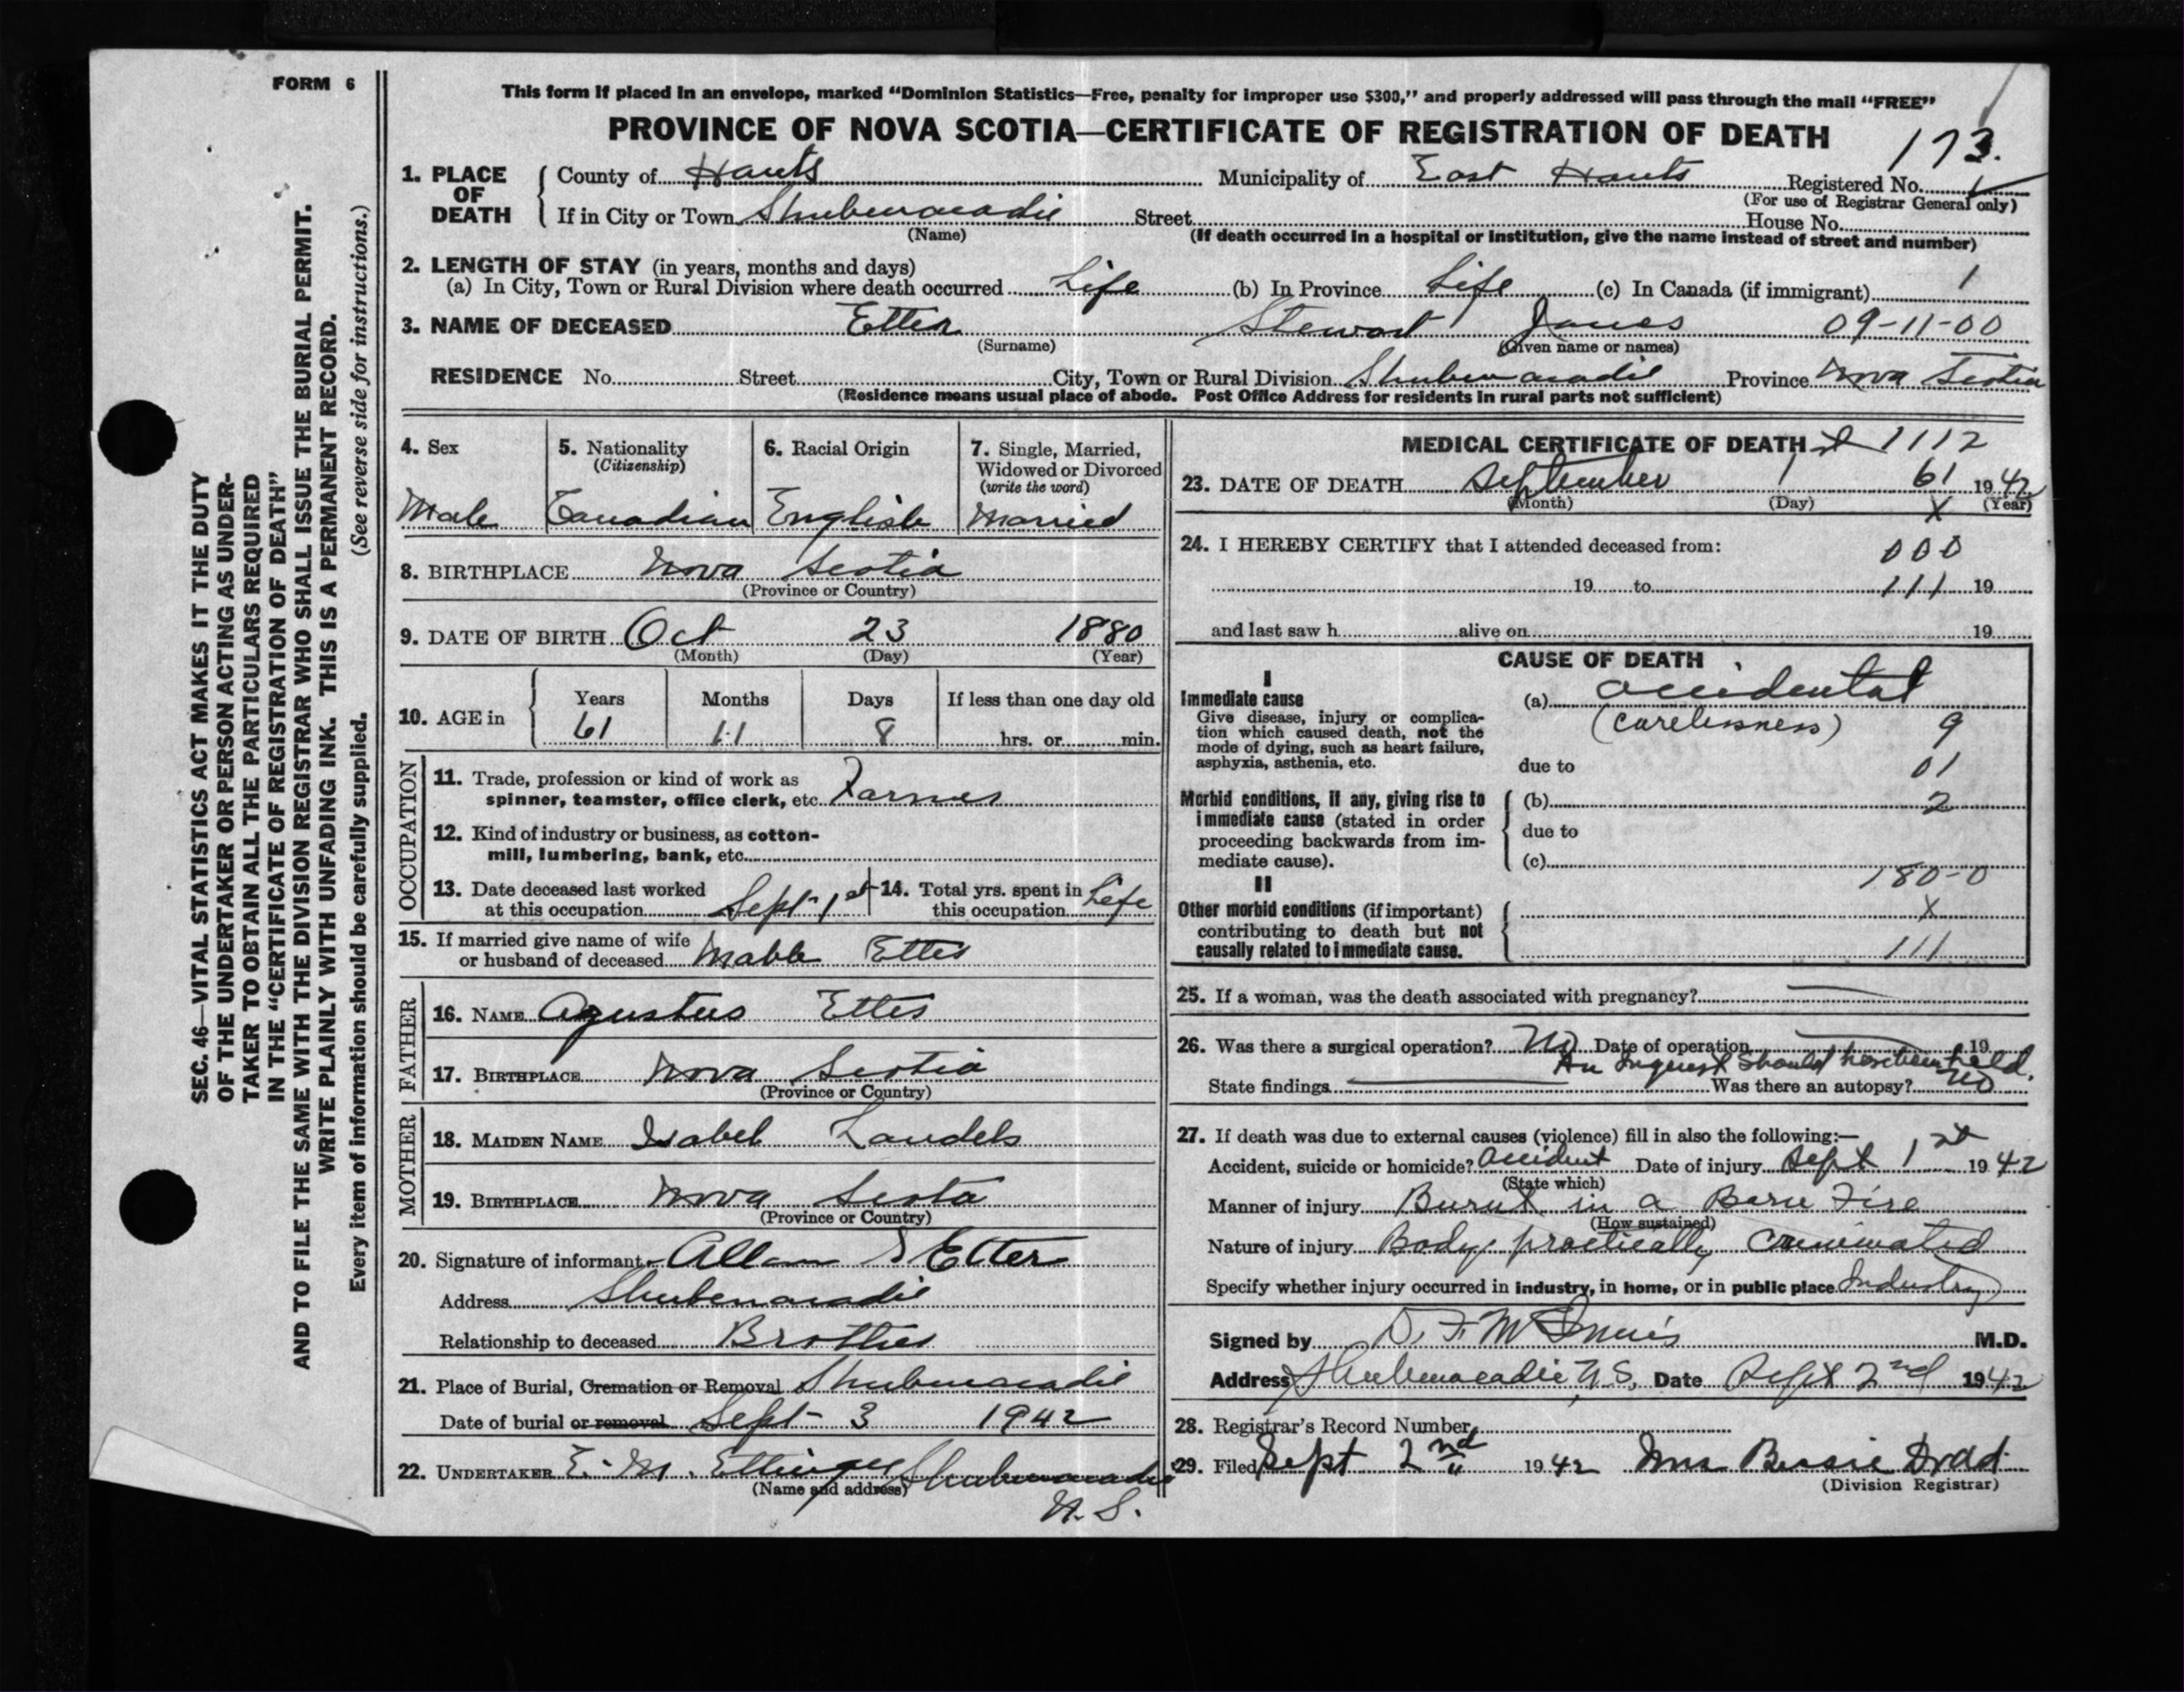 FORM 6
This form if placed in an envelope, marked "Dominion Statistics—Free, penalty for improper use $300," and properly addressed will pass through the mail "FREE"
PROVINCE OF NOVA SCOTIA—CERTIFICATE OF REGISTRATION OF DEATH
173.
1. PLACE OF DEATH
County of Hants Municipality of East Hants Registered No.
(For use of Registrar General only)
If in City or Town Shubenacadie Street House No.
(Name) (If death occurred in a hospital or institution, give the name instead of street and number)
2. LENGTH OF STAY (in years, months and days)
(a) In City, Town or Rural Division where death occurred Life (b) In Province Life (c) In Canada (if immigrant) 1
3. NAME OF DECEASED Etter Stewart James 09-11-00
(Surname) (Given name or names)
RESIDENCE No. Street City, Town or Rural Division Shubenacadie Province Nova Scotia
(Residence means usual place of abode. Post Office Address for residents in rural parts not sufficient)
4. Sex
Male
5. Nationality
(Citizenship)
Canadian
6. Racial Origin
English
7. Single, Married,
Widowed or Divorced
(write the word)
Married
8. BIRTHPLACE Nova Scotia
(Province or Country)
9. DATE OF BIRTH Oct 23 1880
(Month) (Day) (Year)
10. AGE in
Years Months Days If less than one day old
61 11 8 hrs. or min.
OCCUPATION
11. Trade, profession or kind of work as
spinner, teamster, office clerk, etc. Farmer
12. Kind of industry or business, as cotton-
mill, lumbering, bank, etc.
13. Date deceased last worked
at this occupation Sept 1st
14. Total yrs. spent in
this occupation Life
15. If married give name of wife
or husband of deceased Mable Etter
FATHER
16. NAME Agustus Etter
17. BIRTHPLACE Nova Scotia
(Province or Country)
MOTHER
18. MAIDEN NAME Isabel Landels
19. BIRTHPLACE Nova Scota
(Province or Country)
20. Signature of informant Allan S Etter
Address Shubenacadie
Relationship to deceased Brother
21. Place of Burial, Cremation or Removal Shubenacadie
Date of burial or removal Sept 3 1942
22. UNDERTAKER E. M. Ettinger Shubenacadie
(Name and address)
N.S.
MEDICAL CERTIFICATE OF DEATH 1112
23. DATE OF DEATH September 1 61 1942
(Month) (Day) X (Year)
24. I HEREBY CERTIFY that I attended deceased from:
000
19 to 111 19
and last saw h alive on 19
CAUSE OF DEATH
I
Immediate cause
Give disease, injury or complica-
tion which caused death, not the
mode of dying, such as heart failure,
asphyxia, asthenia, etc.
(a) accidental
(carelessness) 9
due to 01
Morbid conditions, if any, giving rise to
immediate cause (stated in order
proceeding backwards from im-
mediate cause).
(b) 2
due to
(c)
180-0
II
Other morbid conditions (if important)
contributing to death but not
causally related to immediate cause.
X
111
25. If a woman, was the death associated with pregnancy?
26. Was there a surgical operation? No Date of operation 19
An Inquest should have been held.
State findings Was there an autopsy? No
27. If death was due to external causes (violence) fill in also the following:—
Accident, suicide or homicide? accident Date of injury Sept 1st 1942
(State which)
Manner of injury Burnt in a Barn Fire
(How sustained)
Nature of injury Body practically creminated
Specify whether injury occurred in industry, in home, or in public place Industry
Signed by D. F. McInnis M.D.
Address Shubenacadie, N.S. Date Sept 2nd 1942
28. Registrar's Record Number
29. Filed Sept 2nd 1942 Mrs Bessie Dodd
(Division Registrar)
SEC. 46—VITAL STATISTICS ACT MAKES IT THE DUTY
OF THE UNDERTAKER OR PERSON ACTING AS UNDER-
TAKER TO OBTAIN ALL THE PARTICULARS REQUIRED
IN THE "CERTIFICATE OF REGISTRATION OF DEATH"
AND TO FILE THE SAME WITH THE DIVISION REGISTRAR WHO SHALL ISSUE THE BURIAL PERMIT.
WRITE PLAINLY WITH UNFADING INK. THIS IS A PERMANENT RECORD.
Every item of information should be carefully supplied. (See reverse side for instructions.)